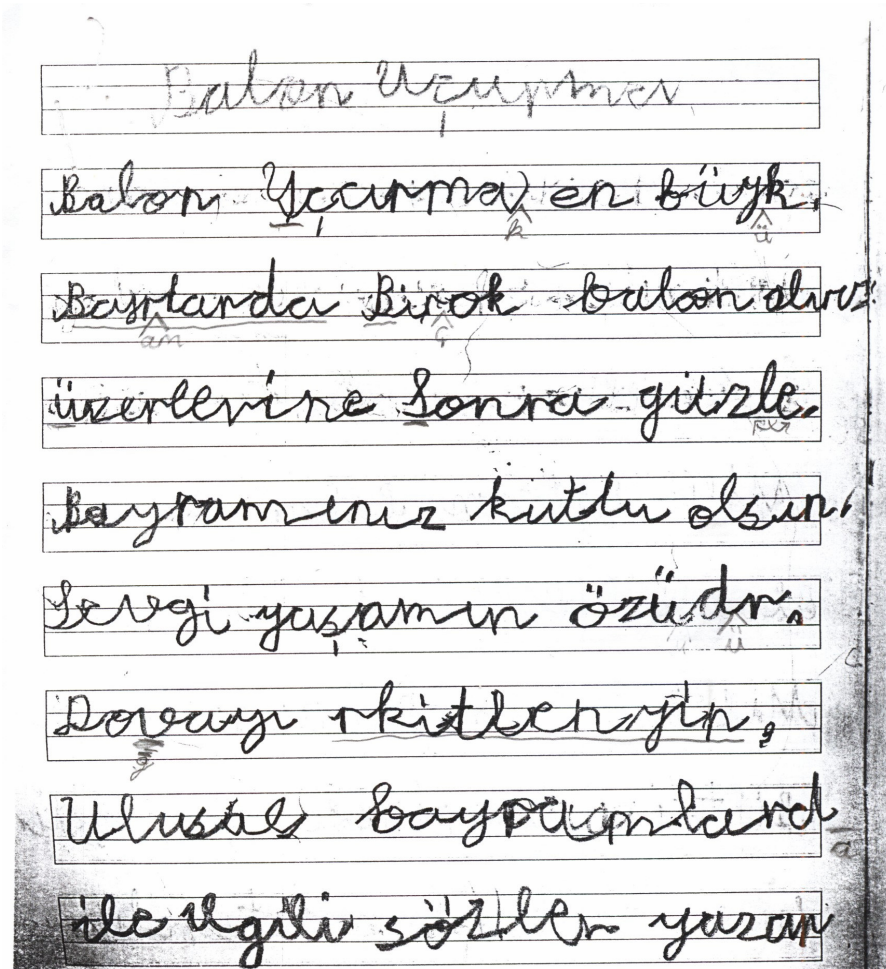 Balon Uçurma
Balon Uçurma en büyk.
Bayrlarda Birok balon alırız
üzerlerine Sonra güzle.
Bayramınız kutlu olsun.
Sevgi yaşamın özüdr.
Dovayı rkitlenyin,
Ulusal bayramlard
ile ilgili sözler yazar